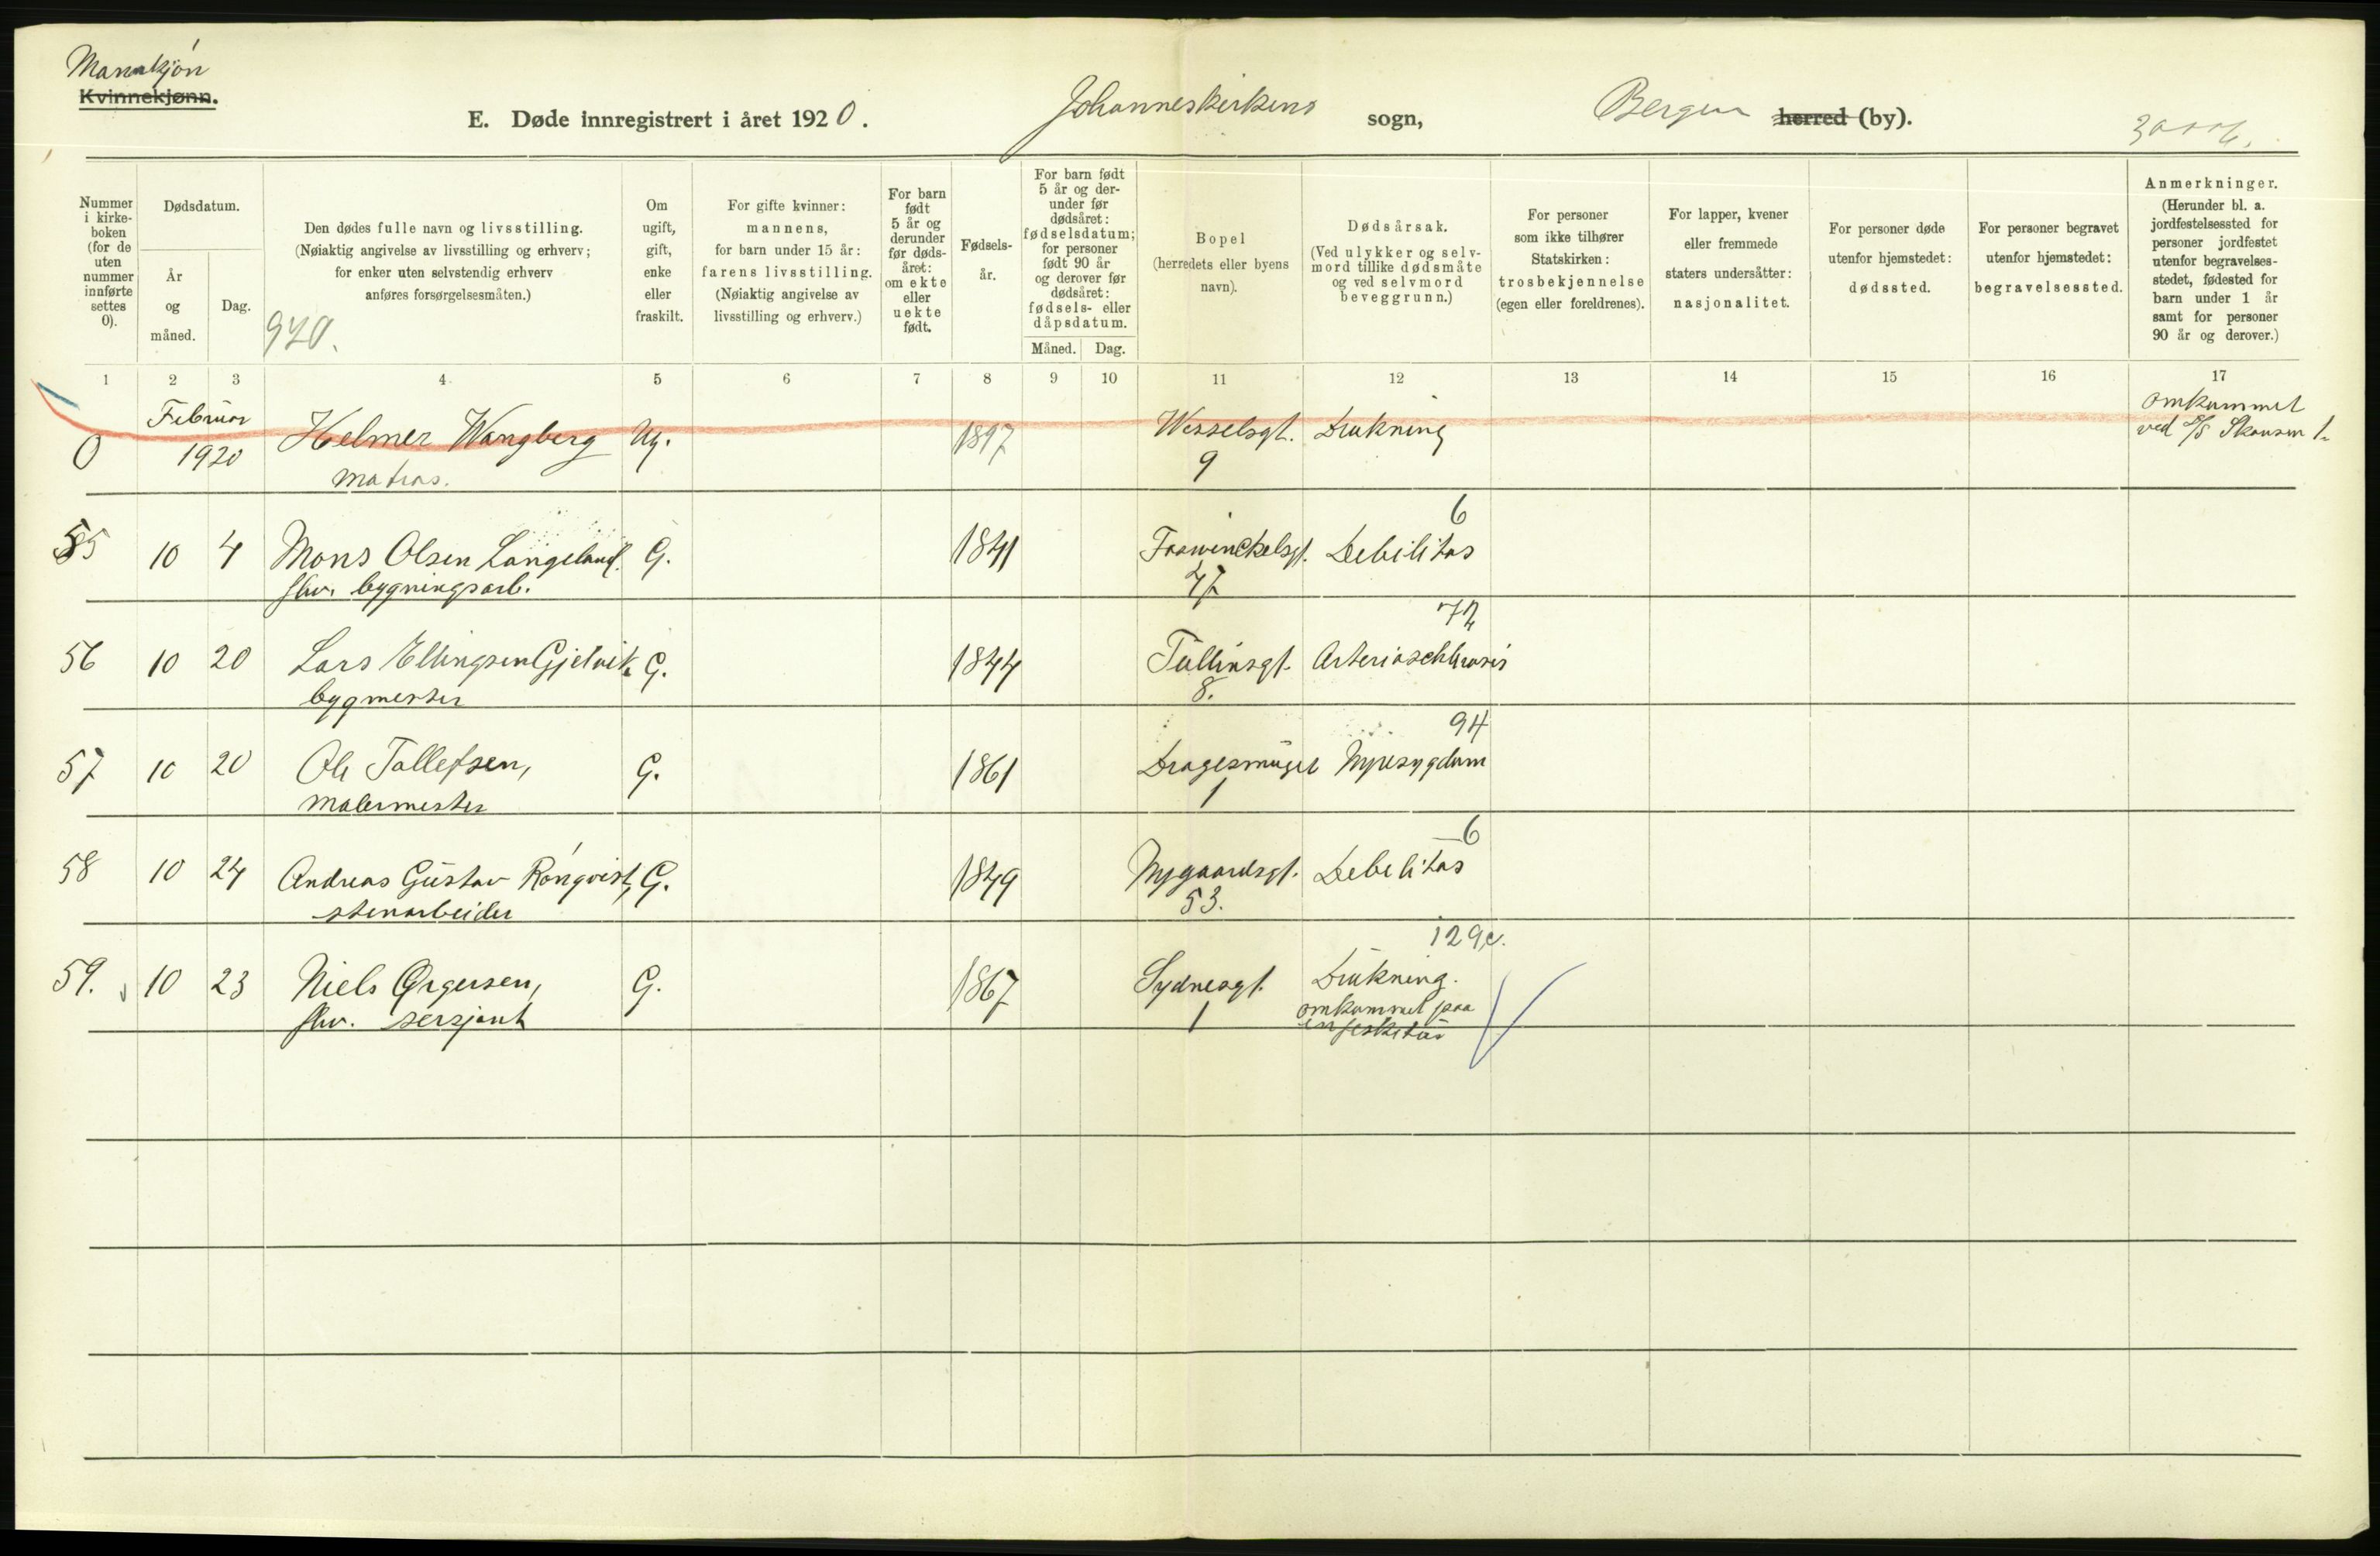 Mannkjøn
Kvinnekjønn.
E. Døde innregistrert i året 1920. Johanneskirkens sogn, Bergen herred (by).
Nummer i kirkeboken (for de uten nummer innførte settes 0).
Dødsdatum.
År og måned.
Dag.
Den dødes fulle navn og livsstilling. (Nøiaktig angivelse av livsstilling og erhverv; for enker uten selvstendig erhverv anføres forsørgelsesmåten.)
920.
Om ugift, gift, enke eller fraskilt.
For gifte kvinner: mannens, for barn under 15 år: farens livsstilling. (Nøiaktig angivelse av livsstilling og erhverv.)
For barn født 5 år og derunder før dødsåret: om ekte eller uekte født.
Fødselsår.
For barn født 5 år og derunder før dødsåret: fødselsdatum; for personer født 90 år og derover før dødsåret: fødsels- eller dåpsdatum.
Måned. Dag.
Bopel (herredets eller byens navn).
Dødsårsak. (Ved ulykker og selvmord tillike dødsmåte og ved selvmord beveggrunn.)
For personer som ikke tilhører Statskirken: trosbekjennelse (egen eller foreldrenes).
For lapper, kvener eller fremmede staters undersåtter: nasjonalitet.
For personer døde utenfor hjemstedet: dødssted.
For personer begravet utenfor hjemstedet: begravelsessted.
Anmerkninger. (Herunder bl. a. jordfestelsessted for personer jordfestet utenfor begravelsesstedet, fødested for barn under 1 år samt for personer 90 år og derover.)
1 2 3 4 5 6 7 8 9 10 11 12 13 14 15 16 17
0 Februar 1920 Helmer Wangberg Ug. 1897 Wesselsgt. Drukning omkommet
matros. 9 ved S/S Skansen 1.
6
55 10 4 Mons Olsen Langeland. G. 1841 Foswinckelsgt. Debilitas
fhv. bygningsarb. 47
56 10 20 Lars Ellingsen Gjelvik G. 1844 Tullinsgt. Arterioschlerosis
bygmester 8.
94
57 10 20 Ole Tollefsen, G. 1861 Dragesmuget Nyresygdom
malermester 1
6
58 10 24 Andreas Gustav Rónqvist, G. 1849 Nygaardsgt. Debelitas
stenarbeider 53.
129c.
59. 10 23 Niels Ørgersen, G. 1867 Sydnesgt. Drukning.
fhv. sersjant 1 omkommet paa
en fisketur